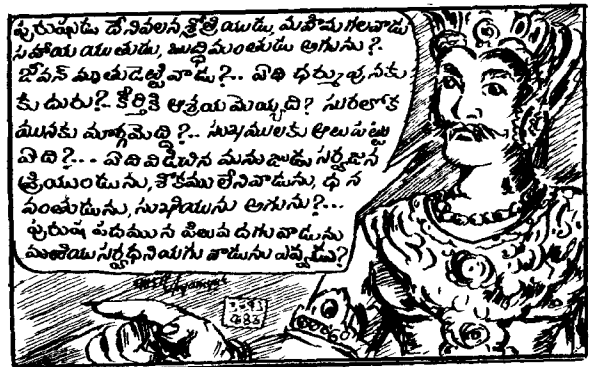 పురుషుడు దేనివలన శ్రోత్రియుడు, మహిమగలవాడు
సహాయ యుతుడు, బుద్ధిమంతుడు అగును?
జీవన్ మృతుడెట్టివాడు?.. ఏది ధర్మువునకు
కుదురు?.. కీర్తికి ఆశ్రయమెయ్యది? సురలోక
మునకు మార్గమెద్ది?.. సుఖములకు ఆలుపట్టు
ఏది?... ఏది విడిచిన మనుజుడు సర్వజన
ప్రియుండును, శోకము లేనివాడును, ధన
వంతుడును, సుఖియును అగును?...
పురుష పదమున పిలువ దగువాడును
మఱియు సర్వధనియగు వాడును ఎవ్వడు?